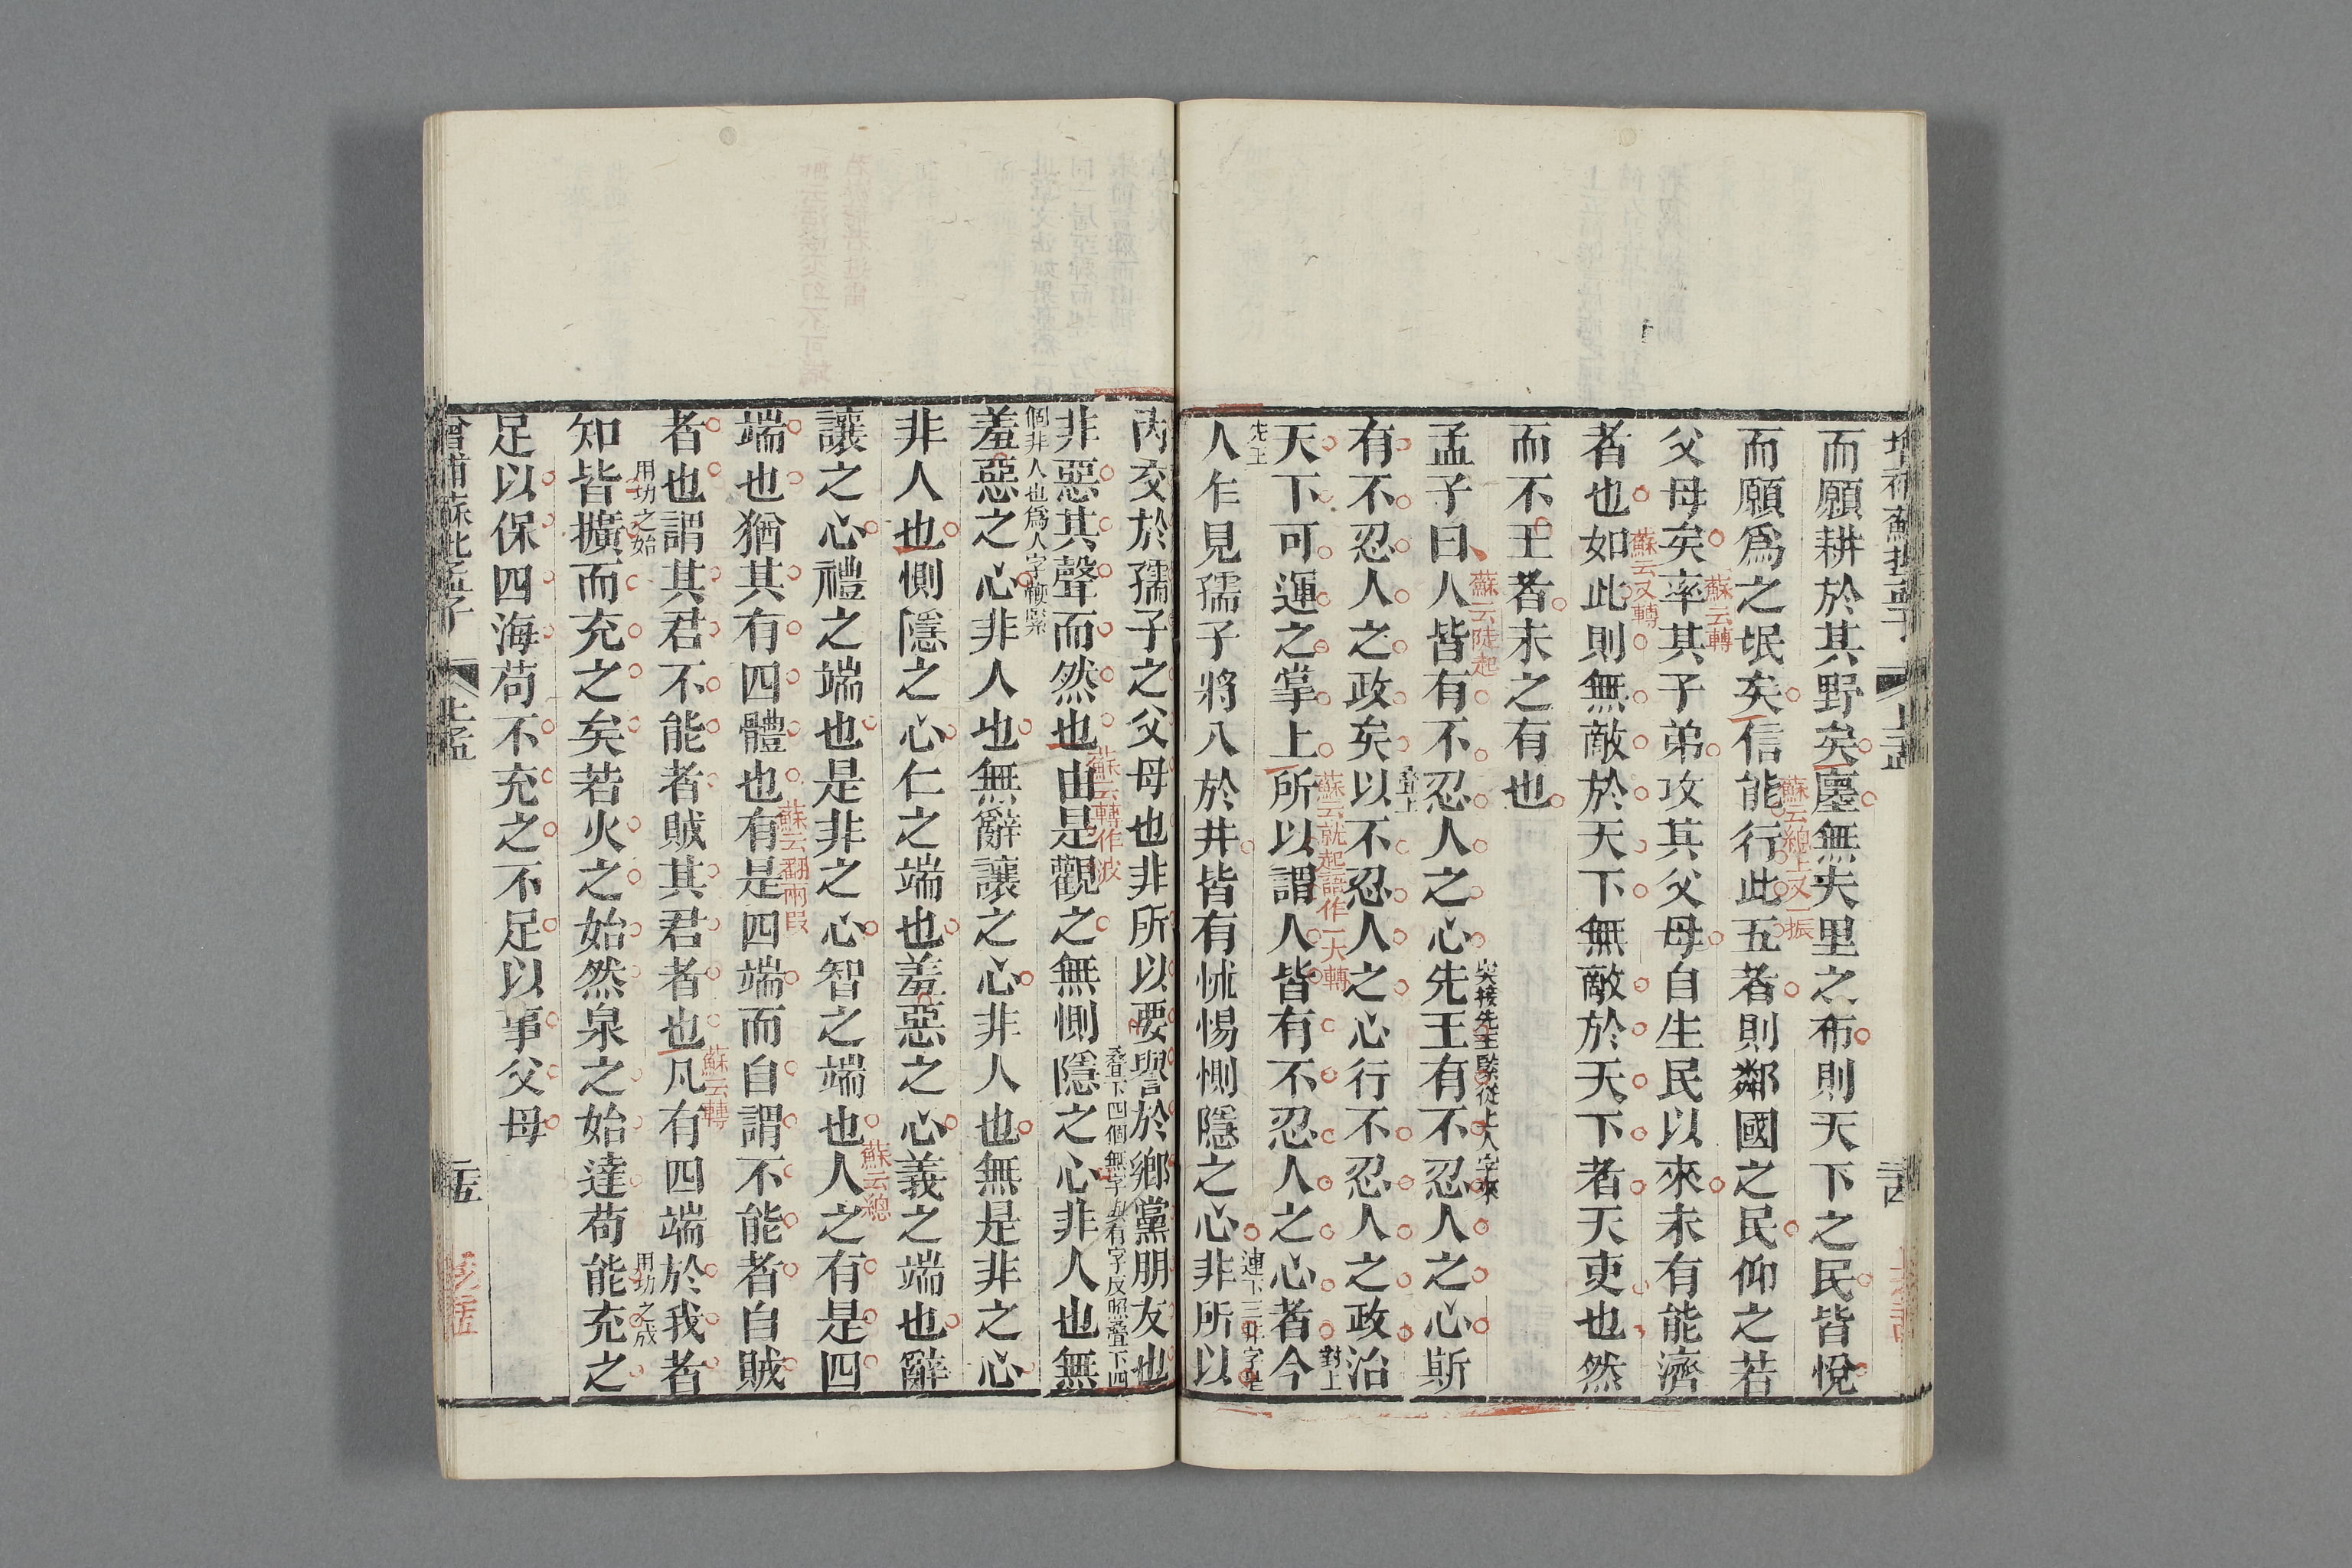 而願耕於其野矣廛無夫里之布則天下之民皆悅
蘇云總上又一振
而願爲之氓矣信能行此五者則鄰國之民仰之若
蘇云轉
父母矣率其子弟攻其父母自生民以來未有能濟
蘇云又轉
者也如此則無敵於天下無敵於天下者天吏也然
而不王者未之有也
蘇云陡起
突接先王緊從上人字來
孟子曰人皆有不忍人之心先王有不忍人之心斯
疊上
有不忍人之政矣以不忍人之心行不忍人之政治
蘇云就起語作一大轉
對上
天下可運之掌上所以謂人皆有不忍人之心者今
先王
連下三非字
人乍見孺子將入於井皆有怵惕惻隱之心非所以
內交於孺子之父母也非所以要譽於鄉黨朋友也
蘇云轉作波
疊下四個無字五有字反照疊下四
非惡其聲而然也由是觀之無惻隱之心非人也無
個非人也爲人字鞭緊
羞惡之心非人也無辭讓之心非人也無是非之心
非人也惻隱之心仁之端也羞惡之心義之端也辭
蘇云總
讓之心禮之端也是非之心智之端也人之有是四
蘇云翻兩段
端也猶其有四體也有是四端而自謂不能者自賊
蘇云轉
者也謂其君不能者賊其君者也凡有四端於我者
用功之始
用功之成
知皆擴而充之矣若火之始然泉之始達苟能充之
足以保四海苟不充之不足以事父母
上孟
二五